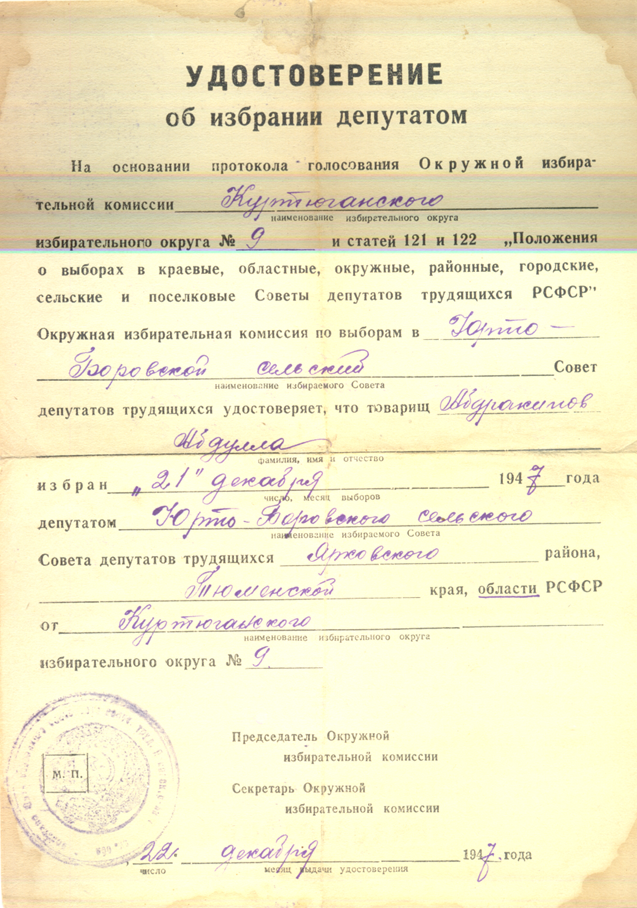 УДОСТОВЕРЕНИЕ
об избрании депутатом
На основании протокола голосования Окружной избира-
тельной комиссии Куртюганского
наименование избирательного округа
избирательного округа № 9 и статей 121 и 122 „Положения
о выборах в краевые, областные, окружные, районные, городские,
сельские и поселковые Советы депутатов трудящихся РСФСР"
Окружная избирательная комиссия по выборам в Юрто-
Боровской сельский Совет
наименование избираемого Совета
депутатов трудящихся удостоверяет, что товарищ Абдракипов
Абдулла
фамилия, имя и отчество
избран „21" декабря 1947 года
число, месяц выборов
депутатом Юрто-Боровского сельского
наименование избираемого Совета
Совета депутатов трудящихся Ярковского района,
Тюменской края, области РСФСР
от Куртюганского
наименование избирательного округа
избирательного округа № 9
Председатель Окружной
избирательной комиссии
М. П.
Секретарь Окружной
избирательной комиссии
22. декабря 1947. года
число месяц выдачи удостоверения